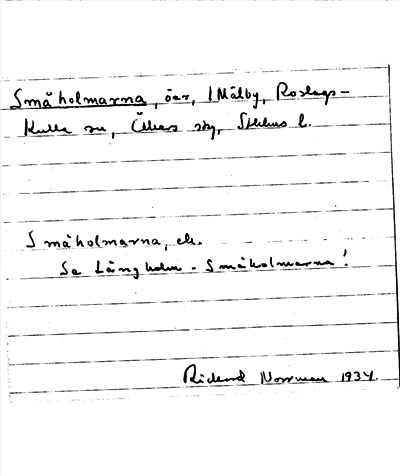 Småholmarna, öar, i Mälby, Roslags-
Kulla sn, Åkers skg, Sthlms l.
Småholmarna, ek.
Se Långholm - Småholmarna!
Rickard Norrman 1934.